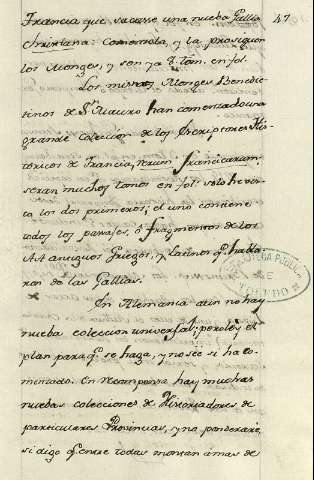 47
Francia que sacasse una nueba Gallia
Christiana: Comenzola, y la prosiguen
los Monges, y son ya 8 tom. en fol.
Los mismos Monges Benedic-
tinos de Sn Mauro han comenzado una
grande coleccion de los Escriptores His-
toricos de Francia, rerum francicarum.
seran muchos tomos en fol. solo he vis-
to los dos primeros; el uno contiene
todos los parajes, o fragmentos de los
AA antiguos Griegos, y Latinos q. habla-
ron de las Gallias.
En Alemania aun no hay
nueba coleccion universal; pero ley el
plan para q. se haga, y no sè si ha co-
menzado. En recompensa hay muchas
nuebas colecciones de Historiadores de
particulares Provincias, y no ponderarè,
si digo q. entre todas montan a mas de
BIBLIOTECA PUBLICA
DE
TOLEDO